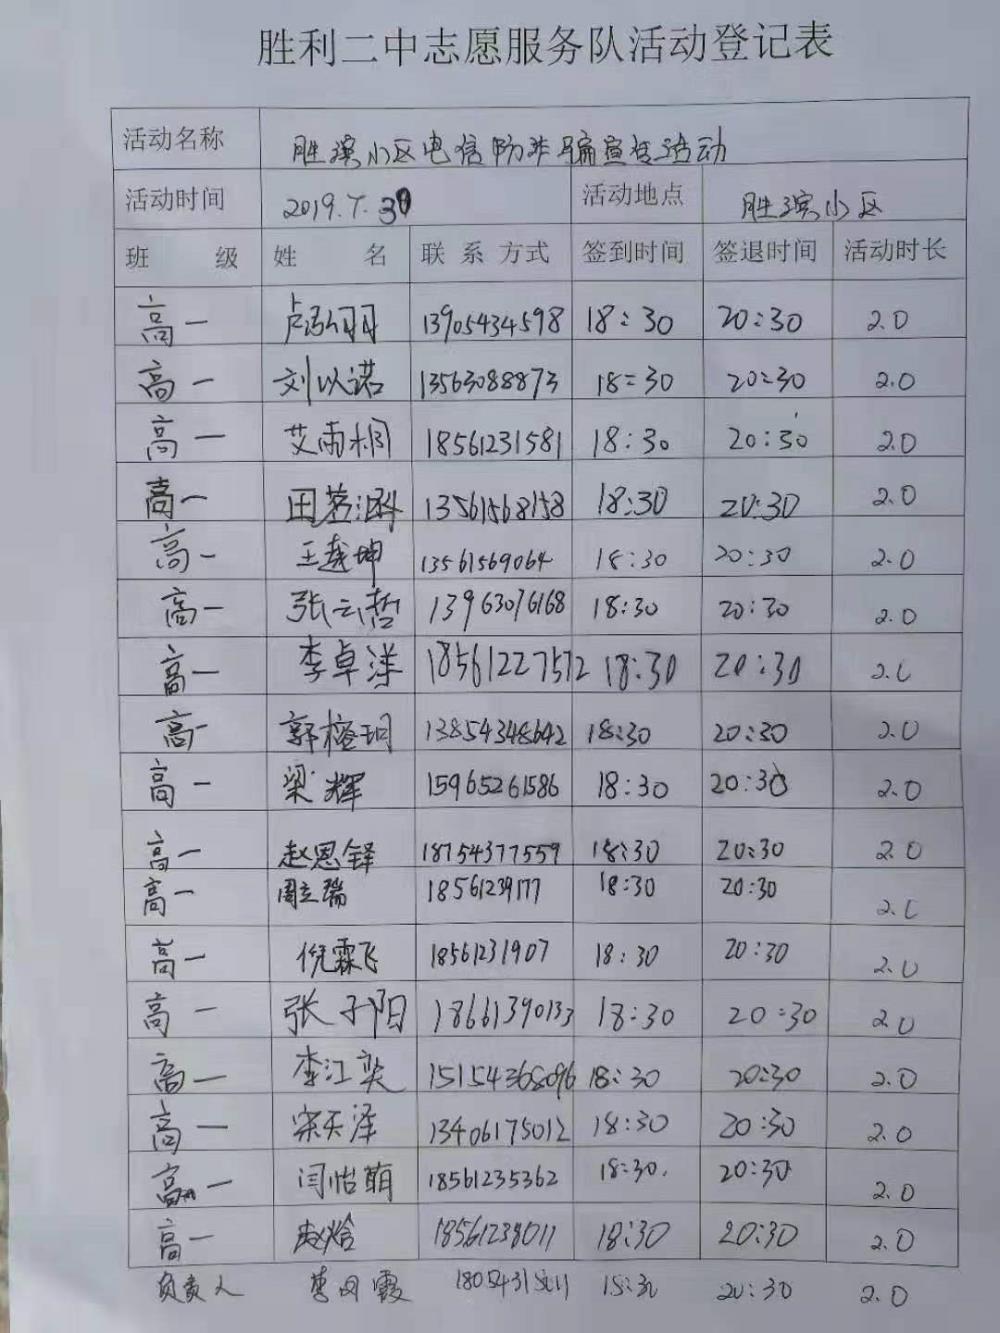 胜利二中志愿服务队活动登记表
活动名称 胜滨小区电信防诈骗宣传活动
活动时间 2019.7.30 活动地点 胜滨小区
班 级 姓 名 联 系 方式 签到时间 签退时间 活动时长
高一 卢泓羽 13905434598 18:30 20:30 2.0
高一 刘以诺 13563088873 18:30 20:30 2.0
高一 艾雨桐 18561231581 18:30 20:30 2.0
高一 田茗涵 13561568158 18:30 20:30 2.0
高一 王越坤 13561569064 18:30 20:30 2.0
高一 张云哲 13963076168 18:30 20:30 2.0
高一 李卓洋 18561227572 18:30 20:30 2.0
高一 郭榕玥 13854348642 18:30 20:30 2.0
高一 梁辉 15965261586 18:30 20:30 2.0
高一 赵恩铎 18754377559 18:30 20:30 2.0
高一 周立瑞 18561239177 18:30 20:30 2.0
高一 倪霖飞 18561231907 18:30 20:30 2.0
高一 张子阳 18661390133 18:30 20:30 2.0
高一 李江奕 15154368096 18:30 20:30 2.0
高一 宋天泽 13406175012 18:30 20:30 2.0
高一 闫怡萌 18561235362 18:30. 20:30 2.0
高一 赵晗 18561238011 18:30 20:30 2.0
负责人 18:30 20:30 2.0